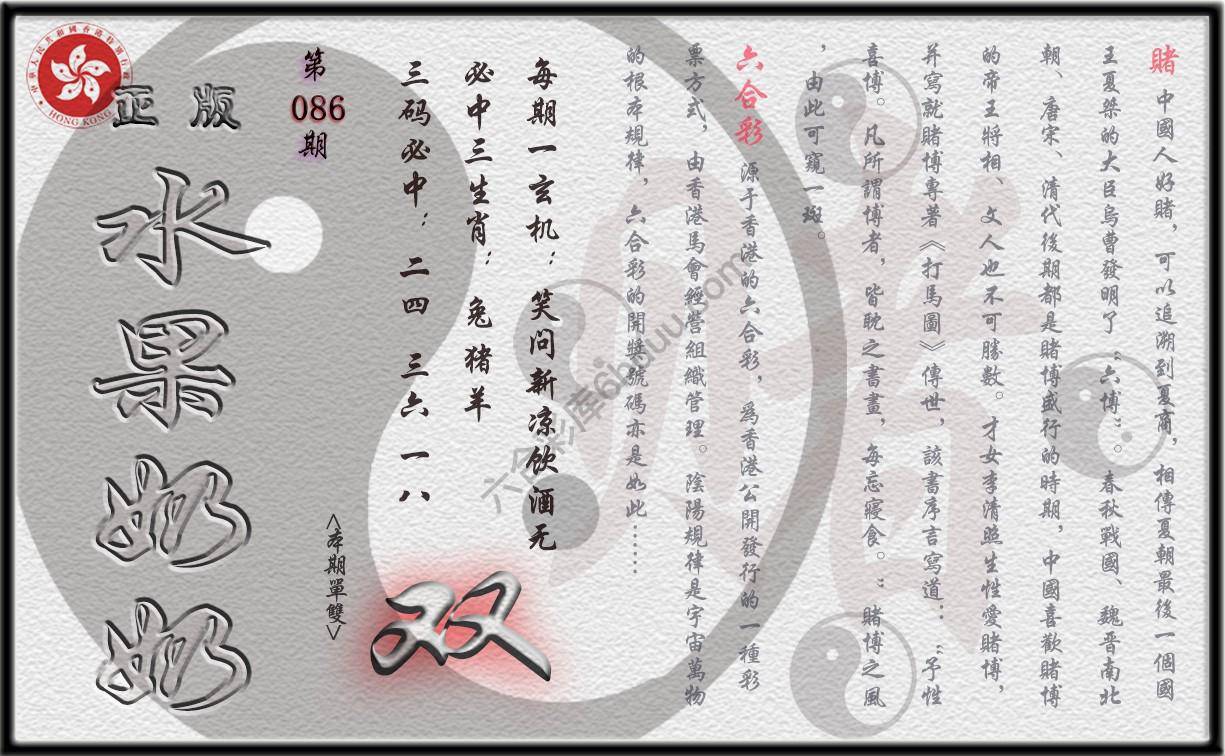 賭 中國人好賭，可以追溯到夏商，相傳夏朝最後一個國
王夏桀的大臣烏曹發明了“六博”。春秋戰國、魏晋南北
朝、唐宋、清代後期都是賭博盛行的時期，中國喜歡賭博
的帝王將相、文人也不可勝數。才女李清照生性愛賭博，
并寫就賭博專著《打馬圖》傳世，該書序言寫道：“予性
喜博。凡所謂博者，皆耽之書畫，每忘寢食。”賭博之風
，由此可窺一斑。
六合彩 源于香港的六合彩，爲香港公開發行的一種彩
票方式，由香港馬會經營組織管理。陰陽規律是宇宙萬物
的根本規律，六合彩的開獎號碼亦是如此……
每期一玄机：笑问新凉饮酒无
必中三生肖：兔猪羊
三码必中：二四 三六 一八
<本期單雙>
双
第
086
期
正版
水果奶奶
中華人民共和國香港特別行政區
HONG KONG
六合彩库6hduu.com